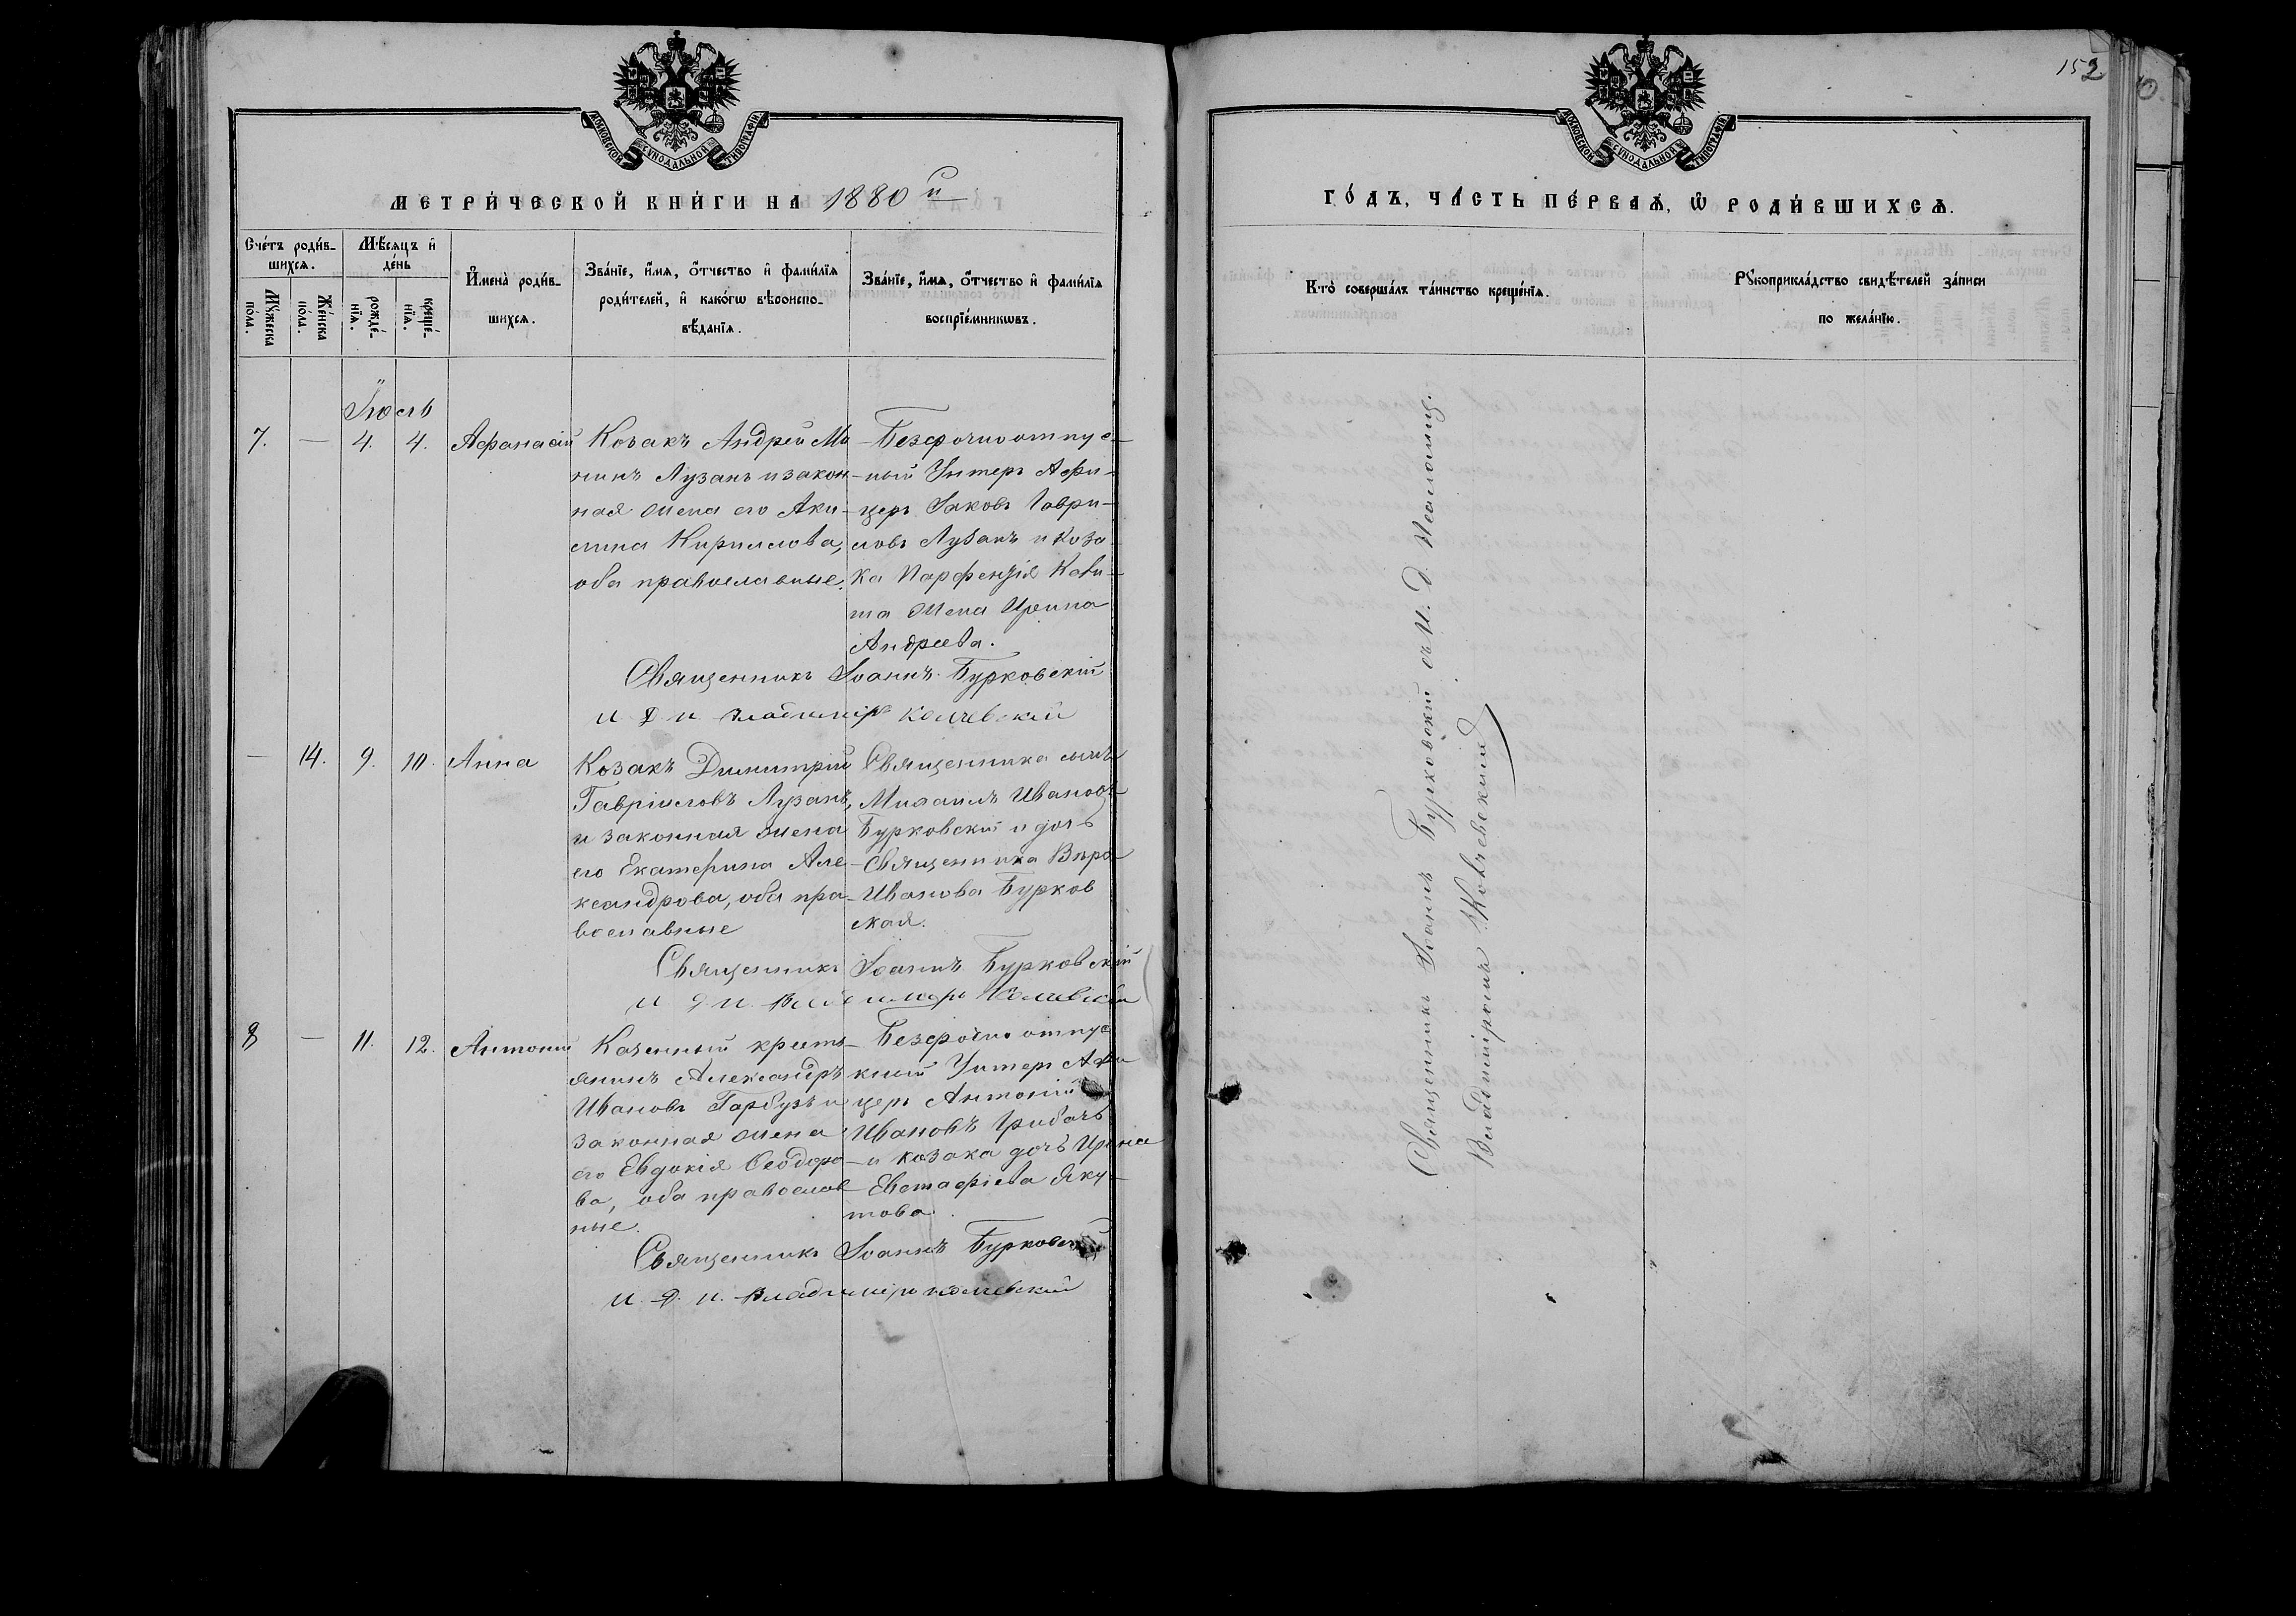 МОСКОВСКОЙ СѴНОДАЛЬНОЙ ТИПОГРАФІИ
МЕТРИ́ЧЕСКОЙ КНИ́ГИ НА 1880 й
Сче́тъ роди́в-
шихсѧ.
Мѣ́сѧцъ и҆
де́нь
Мꙋ́жеска
по́ла.
Же́нска
по́ла.
рожде́-
нїѧ.
креще́-
нїѧ.
И҆мена̀ роди́в-
шихсѧ.
Зва́нїе, и҆́мѧ, ѻ҆́тчество и҆ фами́лїѧ
роди́телей, и҆ како́гѡ вѣроиспо-
вѣ́данїѧ.
Зва́нїе, и҆́мѧ, ѻ҆́тчество и҆ фами́лїѧ
воспрїе́мникѡвъ.
Іюль
7. — 4. 4. Афанасій
Козакъ Андрей Ми
нинъ Лузанъ и закон
ная жена его Аки-
лина Кириллова,
оба православные.
Безсрочно отпус-
ный Унтеръ Афи-
церъ Іаковъ Гаври-
ловъ Лузанъ и Коза-
ка Парфенія
жена Ирина
Андреева.
Священникъ Іоаннъ Бурковскій
И Д П Владиміръ
— 14. 9. 10. Анна
Козакъ Димитрій
Гавріиловъ Лузанъ,
и законная жена
его Екатерина Але-
ксандрова, оба пра-
вославные
Священника сынъ
Михаилъ Ивановъ
Бурковскій и дочь
Священника Вѣра
Иванова Бурков
ская.
Священникъ Іоаннъ Бурковскій
И Д П Владиміръ
8 — 11. 12. Антоній
Казенный кресть-
янинъ Александръ
Ивановъ Гарбузъ и
законная жена
его Евдокія Ѳеодоро-
ва, оба православ-
ные.
Безсрочно отпус
кный Унтеръ Афи
церъ Антоній
Ивановъ Грибачъ
и козака дочь Ирина
Евстафіева Яку-
това.
Священникъ Іоаннъ Бурковскій
И. Д. П. Владиміръ
152
МОСКОВСКОЙ СѴНОДАЛЬНОЙ ТИПОГРАФІИ
ГО́ДЪ, ЧА́СТЬ ПЕ́РВАѦ, Ѽ РОДИ́ВШИХСѦ.
Кто̀ соверша́лъ та́инство креще́нїѧ.
Рꙋкоприкла́дство свидѣ́телей за́писи
по жела́нїю.
Священникъ Іоаннъ Бурковскій съ И. Д. Псаломщ.
Владиміромъ